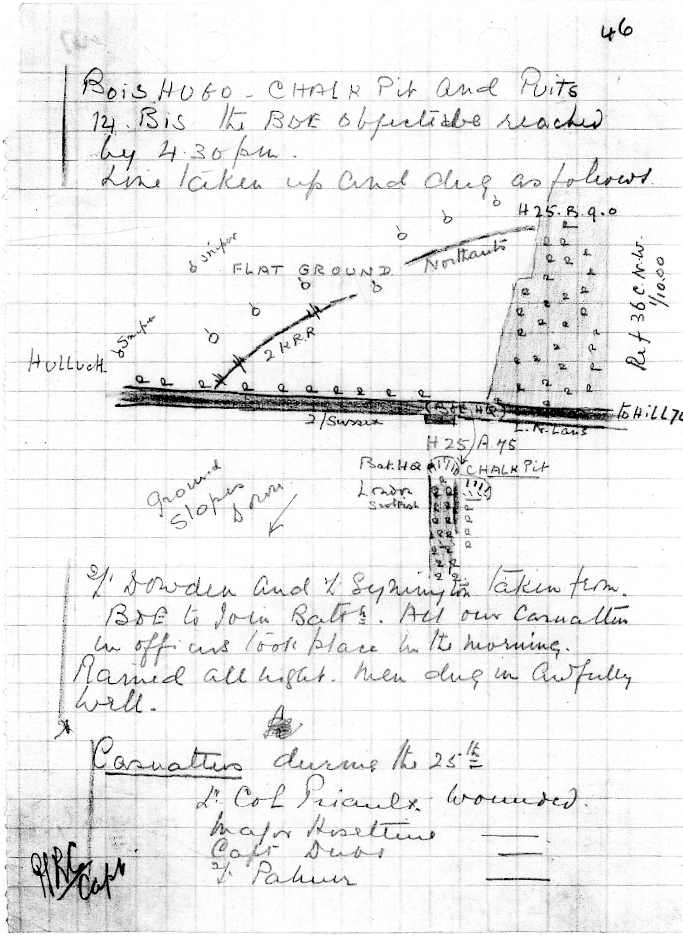 46
Bois HUGO - CHALK Pit and Puits
14. Bis the BDE objective reached
by 4.30 pm.
Line taken up and dug as follows.
H 25. B. 9. 0
Sniper
FLAT GROUND
Northants
Ref 36 C. N.W.
1/10.00
Sniper
2 K.R.R
HULLUCH.
(BDE HQ)
to HILL 70
2/Sussex
L.N. Lans
H 25 A. 75
Bat. HQ
CHALK Pit
London
Scottish
Ground
Slopes
Down
2/Lt Dowden and 2/Lt Symington taken from
BDE to join Battn. All our casualties
in officers took place in the morning.
Rained all night. Men dug in awfully
well.
Casualties during the 25th
Lt Col Priaulx wounded.
Major
Capt
2/Lt Palmer
Capt